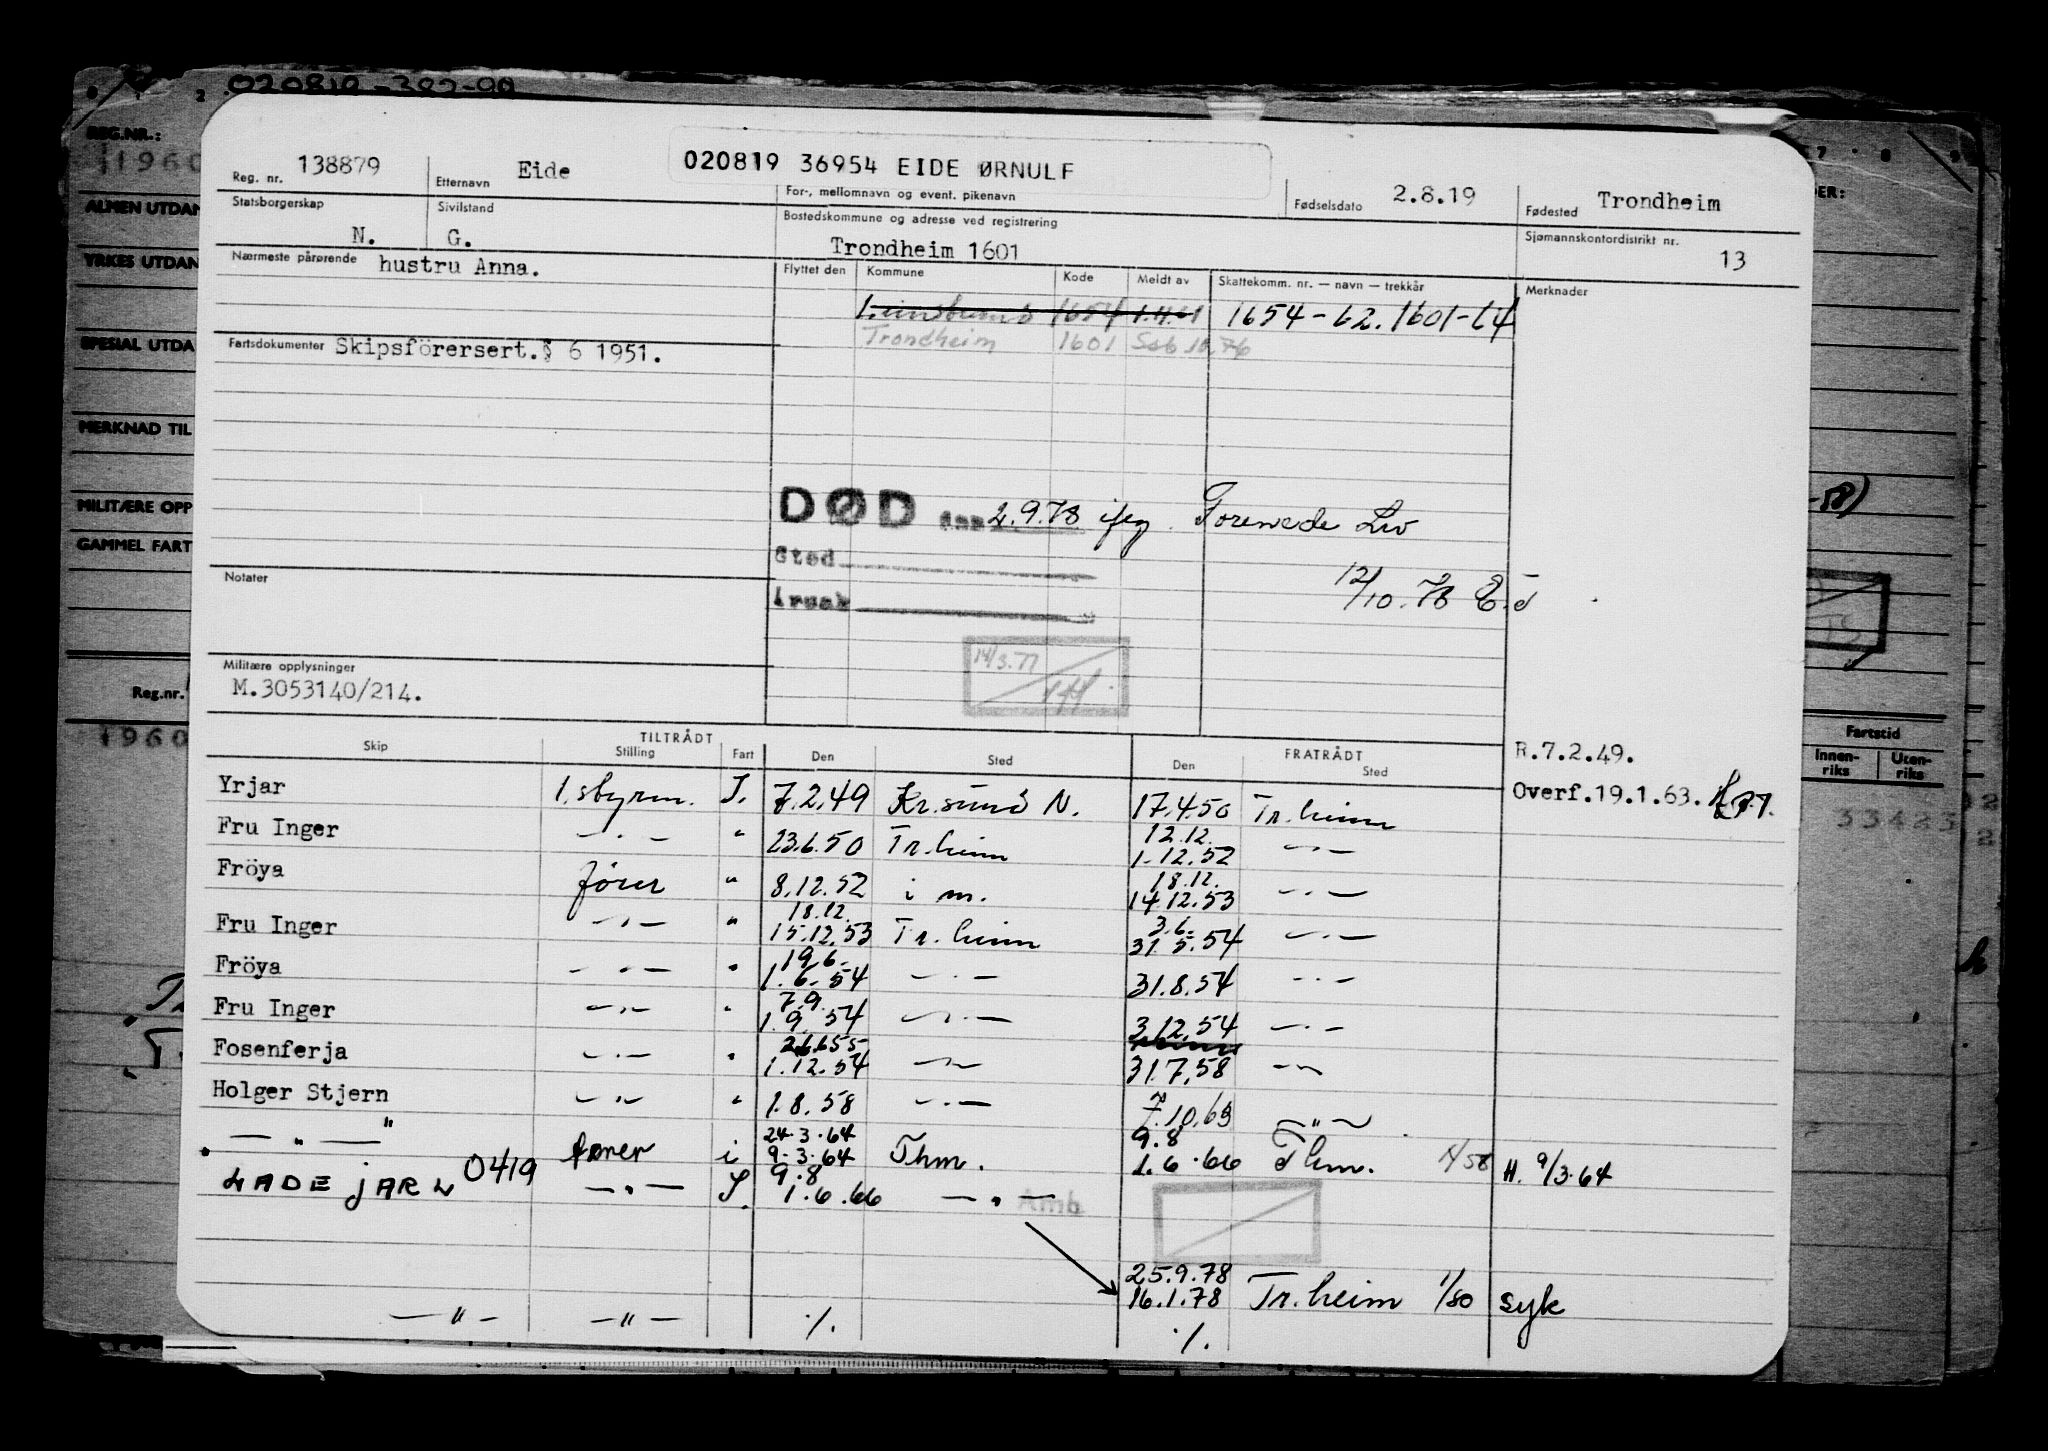 020819-382-90
REG.NR.:
1960
ALMEN UTDAN
YRKES UTDAN
SPESIAL UTDA
MERKNAD TIL
MILITÆRE OPP
GAMMEL FART
Reg.nr.
1960
Reg. nr. 138879 Etternavn Eide 020819 36954 EIDE ØRNULF
For-, mellomnavn og event. pikenavn
Fødselsdato 2.8.19 Fødested Trondheim
Statsborgerskap N. Sivilstand G.
Bostedskommune og adresse ved registrering Trondheim 1601
Sjømannskontordistrikt nr. 13
Nærmeste pårørende hustru Anna.
Flyttet den Kommune Kode Meldt av Skattekomm. nr. — navn — trekkår Merknader
Leinstrand 1654 1.4.61 1654-62. 1601-64
Trondheim 1601 Ssb 10.76
Fartsdokumenter Skipsförersert.§ 6 1951.
DØD den 2.9.78 ifeg. Forenede Liv
Sted
Årsak
12/10.78
Notater
14/3.77
Militære opplysninger
M.3053140/214.
TILTRÅDT FRATRÅDT
Skip Stilling Fart Den Sted Den Sted
R.7.2.49.
Overf.19.1.63.
Yrjar 1.styrm. I. 7.2.49 Kr.sund N. 17.4.50 Tr.heim
Fru Inger —.— " 23.6.50 Tr.heim 12.12. 1.12.52 —.—
Fröya fører " 8.12.52 i m. 18.12. 14.12.53 —.—
Fru Inger —.— " 18.12. 15.12.53 Tr.heim 3.6. 31.5.54 —.—
Fröya —.— " 19.6. 1.6.54 —.— 31.8.54 —.—
Fru Inger —.— " 7.9. 1.9.54 —.— 3.12.54 —.—
Fosenferja —.— " 26.6.55 1.12.54 —.— 31.7.58 —.—
Holger Stjern —.— " 1.8.58 —.— 7.10.63 —"—
— " — " fører i 24.3.64 9-3-64 Thm. 9.8 1.6.66 Thm. 1/58 H. 9/3-64
LADE JARL 0419 —"— I. 9.8 1.6.66 —"— Amb
25.9.78
16.1.78 Tr.heim 1/80 syk
—"— —"— ·/. ·/.
DER:
-58)
Fartstid
Innen-riks Uten-riks
33423